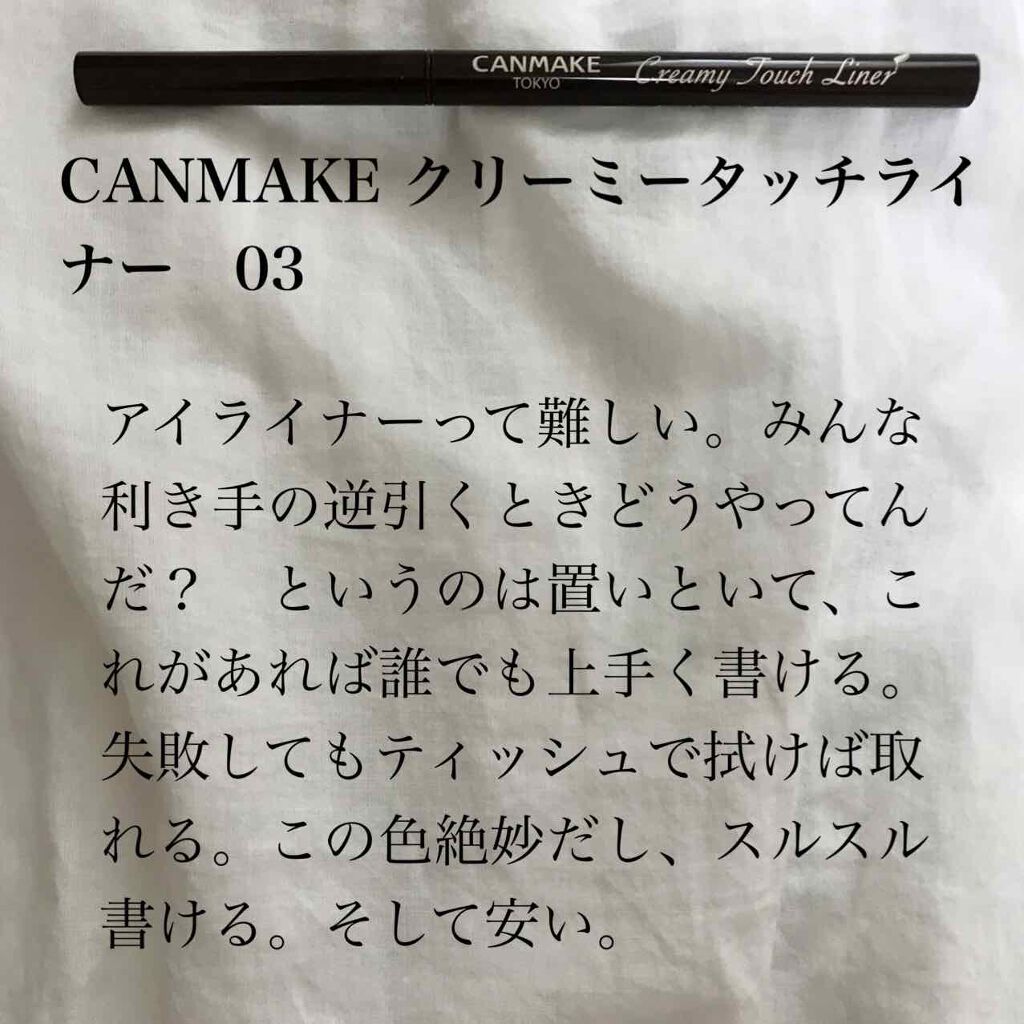 CANMAKE
TOKYO
Creamy Touch Liner
CANMAKE クリーミータッチライ
ナー　03
アイライナーって難しい。みんな
利き手の逆引くときどうやってん
だ？　というのは置いといて、こ
れがあれば誰でも上手く書ける。
失敗してもティッシュで拭けば取
れる。この色絶妙だし、スルスル
書ける。そして安い。